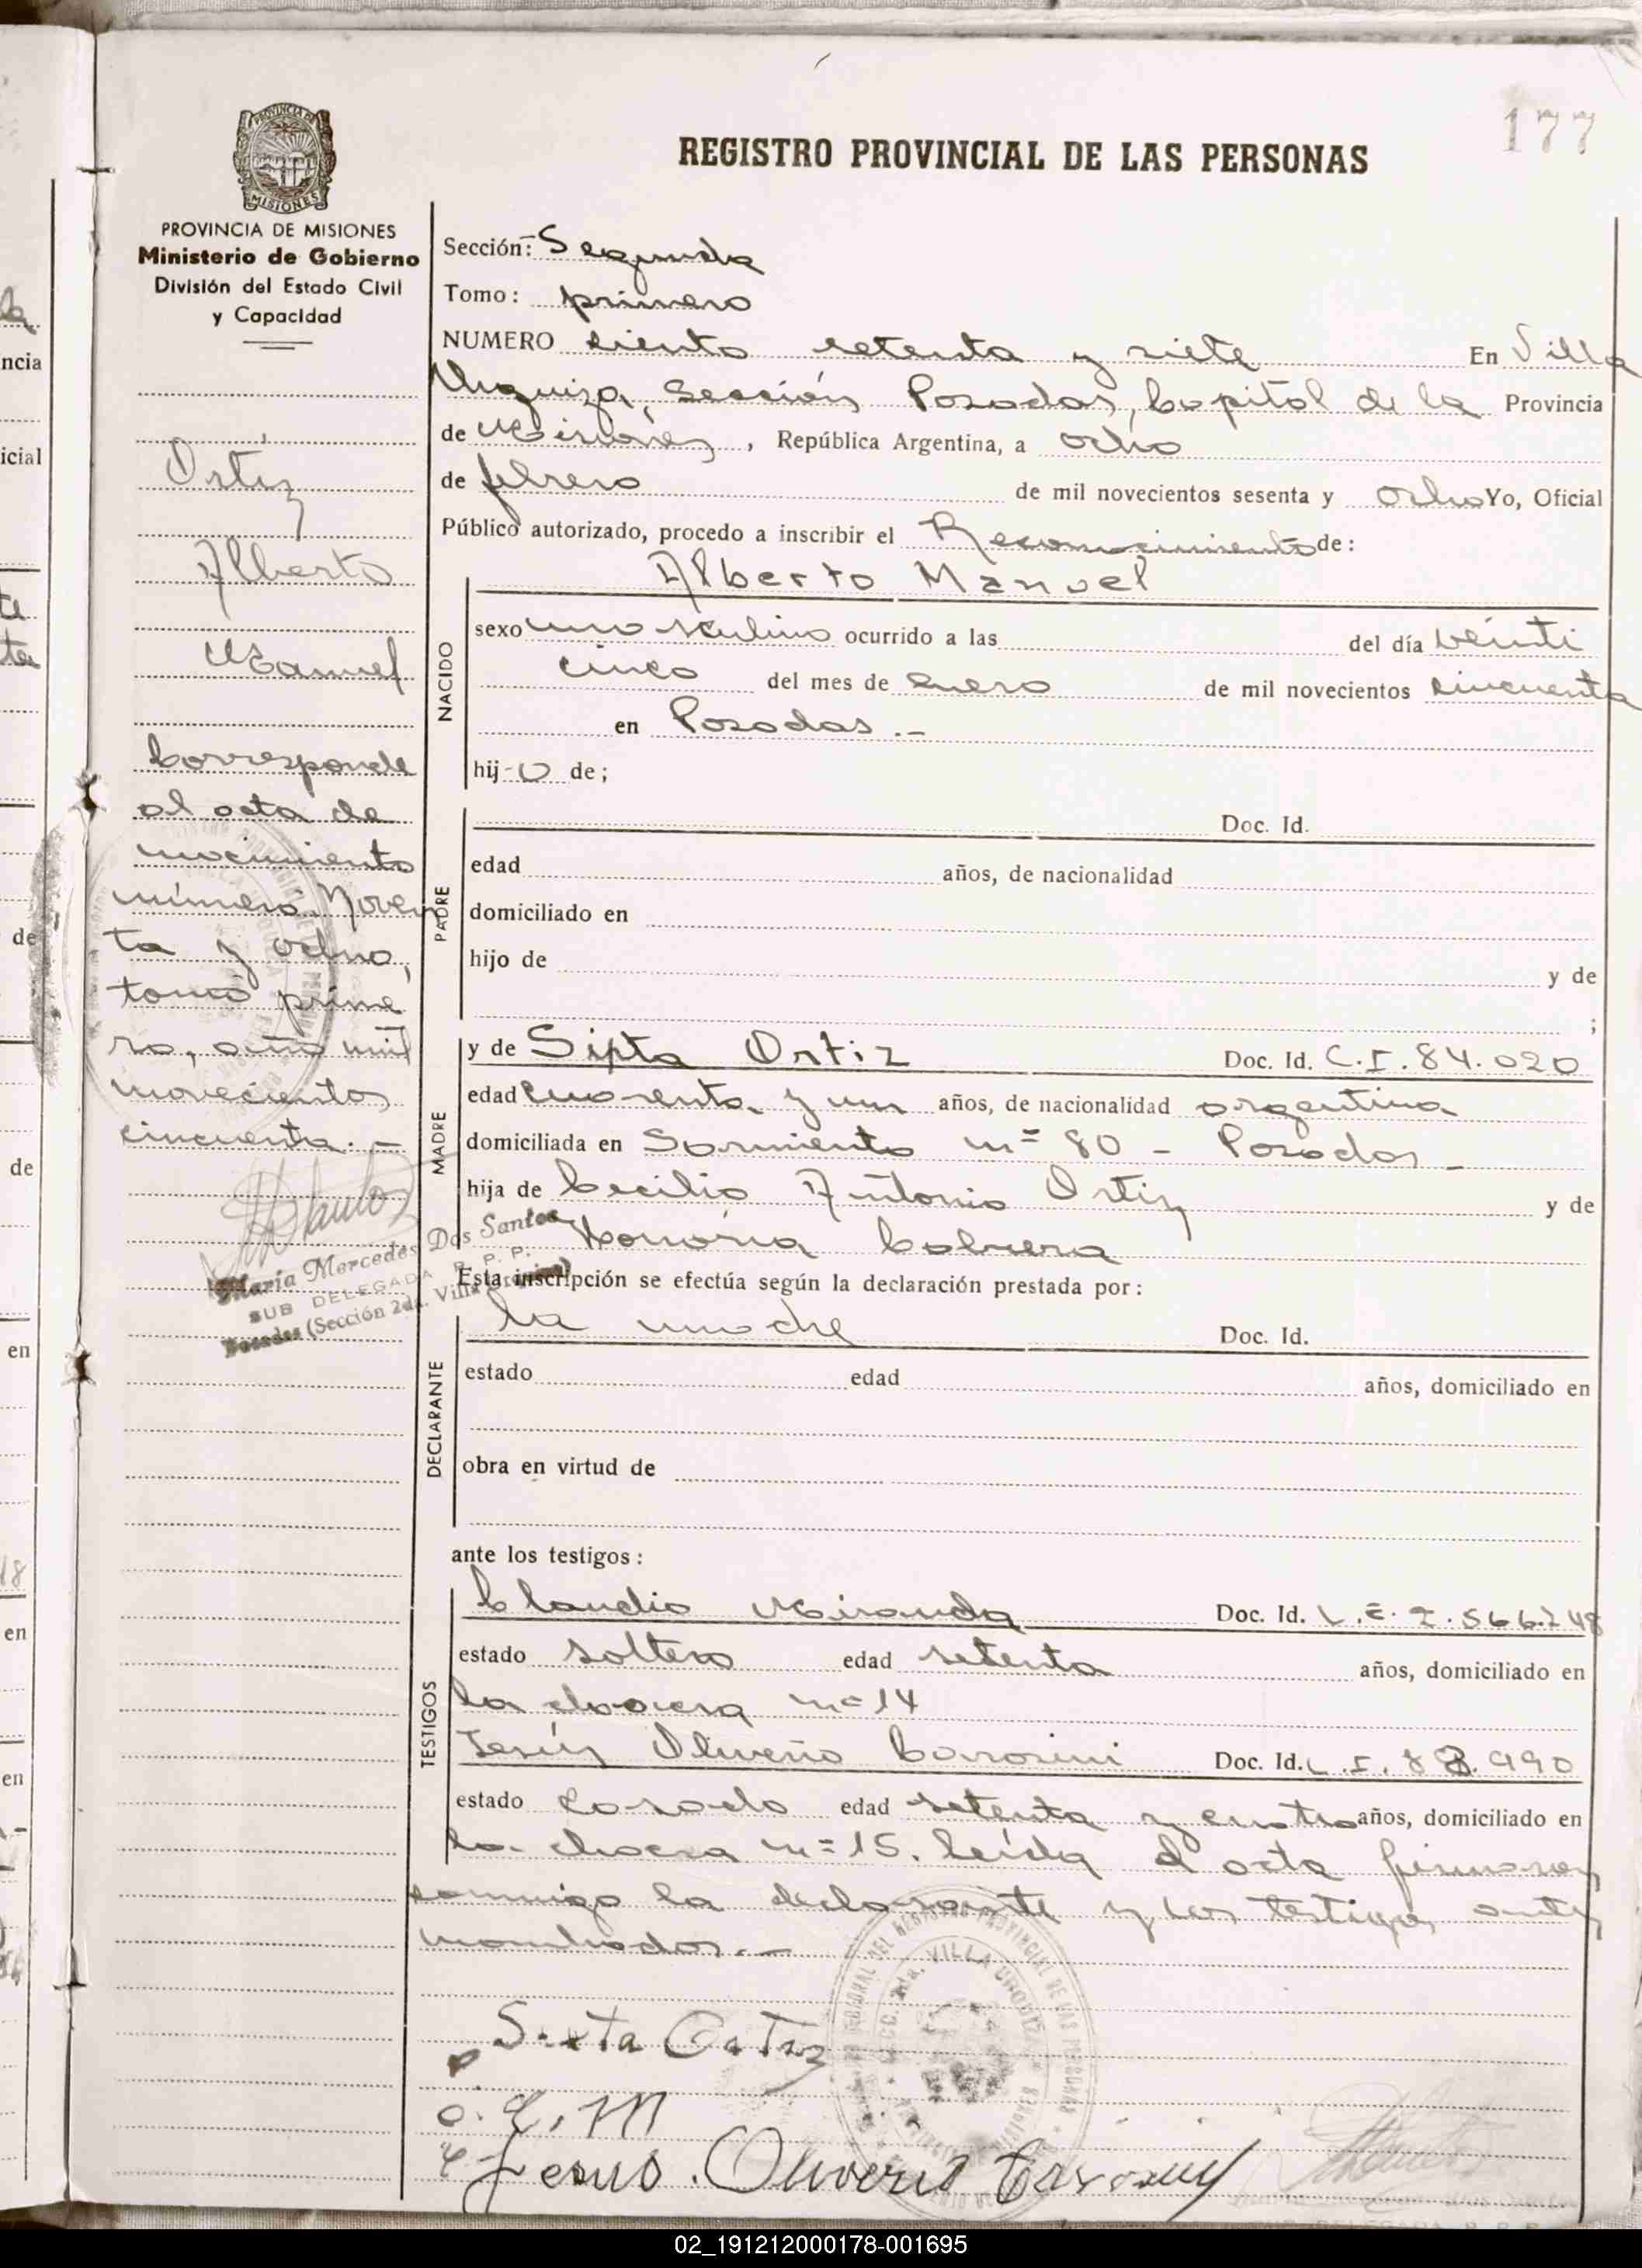 177
REGISTRO PROVINCIAL DE LAS PERSONAS
PROVINCIA DE MISIONES
Ministerio de Gobierno
División del Estado Civil
y Capacidad
Ortiz
Alberto
Manuel
Corresponde
al acta de
nacimiento
número Noven
ta y ocho,
tomo prime
ro, año mil
novecientos
cincuenta.-
María Mercedes Dos Santos
SUB DELEGADA R. P. P.
Posadas (Sección 2da. Villa Urquiza)
Sección: Segunda
Tomo: primero
NUMERO ciento setenta y siete En Villa
Urquiza, Sección Posadas, Capital de la Provincia
de Misiones, República Argentina, a ocho
de febrero de mil novecientos sesenta y ocho Yo, Oficial
Público autorizado, procedo a inscribir el Reconocimiento de:
Alberto Manuel
NACIDO
sexo masculino ocurrido a las del día veinti
cinco del mes de enero de mil novecientos cincuenta
en Posadas.-
hij-o de;
PADRE
Doc. Id.
edad años, de nacionalidad
domiciliado en
hijo de y de
;
MADRE
y de Sixta Ortiz Doc. Id. C.I. 84.020
edad cuarenta y un años, de nacionalidad argentina
domiciliada en Sarmiento nº 80 - Posadas -
hija de Cecilio Antonio Ortiz y de
Honoria Cabrera
Esta inscripción se efectúa según la declaración prestada por:
DECLARANTE
la madre Doc. Id.
estado edad años, domiciliado en
obra en virtud de
ante los testigos:
TESTIGOS
Claudio Miranda Doc. Id. L.E. 2.566.248
estado soltero edad setenta años, domiciliado en
la chacra nº 14
Jesús Oliverio Doc. Id. 990
estado casado edad setenta y cuatro años, domiciliado en
la chacra nº 15. Leída el acta firmaron
conmigo la declarante y los testigos antes
nombrados.-
Sixta Ortiz
Jesus Oliverio
02_191212000178-001695